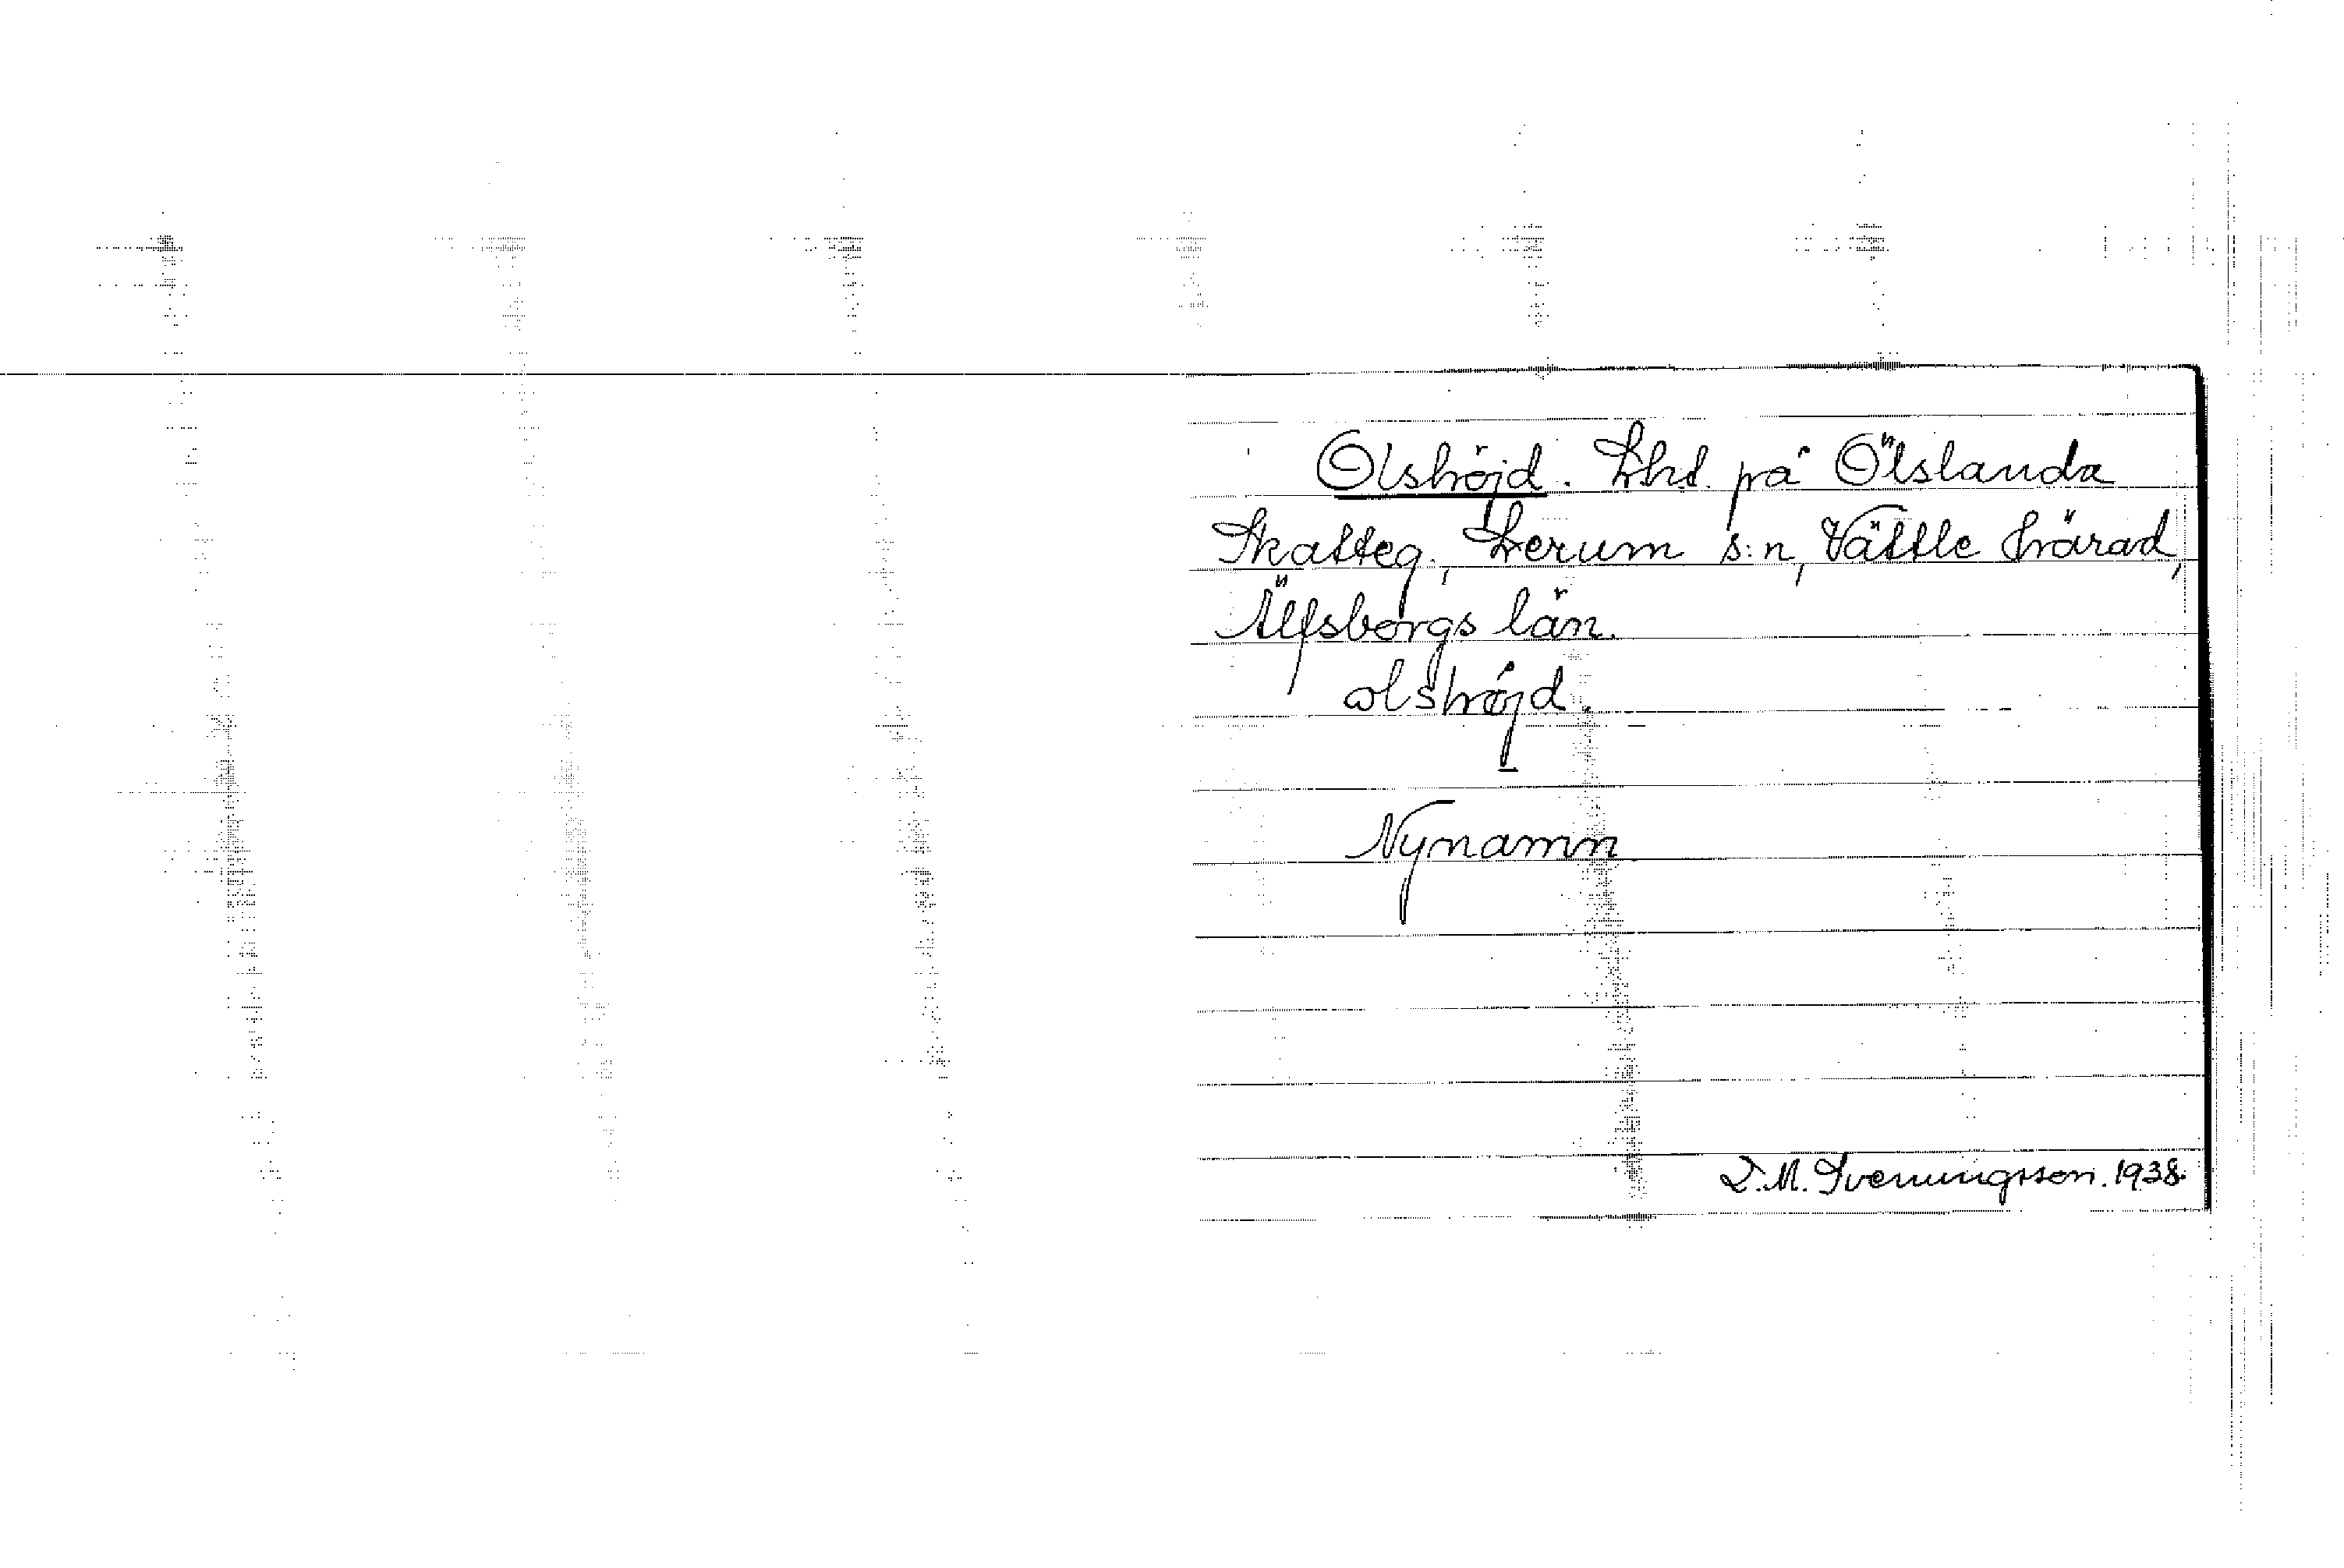 Olshöjd. Lhd. på Ölslanda
Skatteg., Lerum s:n, Vättle härad,
Älfsborgs län.
olshöjd.
Nynamn
D.M. Svenungsson. 1938.